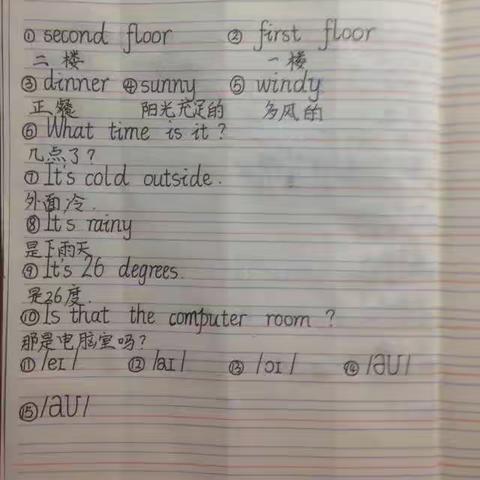 ① second floor ② first floor
二楼 一楼
③ dinner ④ sunny ⑤ windy
正餐 阳光充足的 多风的
⑥ What time is it?
几点了?
⑦ It's cold outside.
外面冷.
⑧ It's rainy
是下雨天
⑨ It's 26 degrees.
是26度.
⑩ Is that the computer room?
那是电脑室吗?
⑪ /eɪ/ ⑫ /aɪ/ ⑬ /ɔɪ/ ⑭ /əʊ/
⑮ /aʊ/